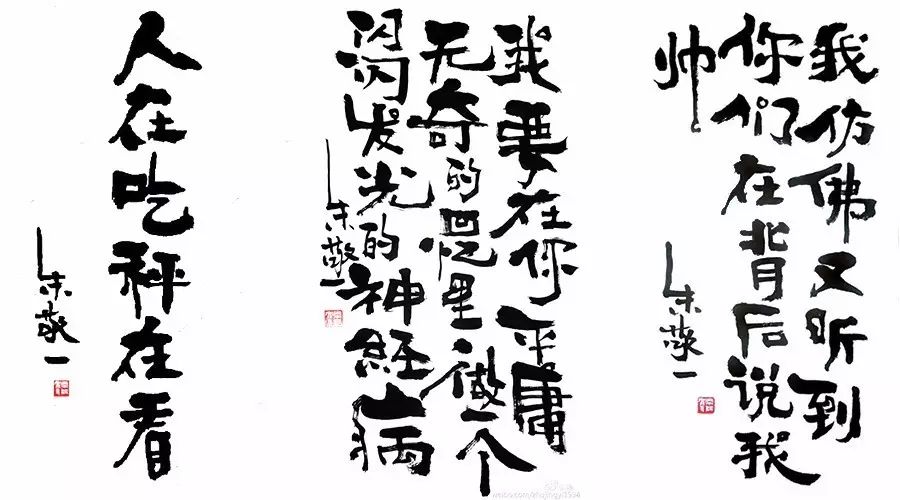 我仿佛又听到
你们在背后说我
帅
朱敬一
我要在你平庸
无奇的回忆里做一个
闪闪发光的神经病
朱敬一
人在吃秤在看
朱敬一